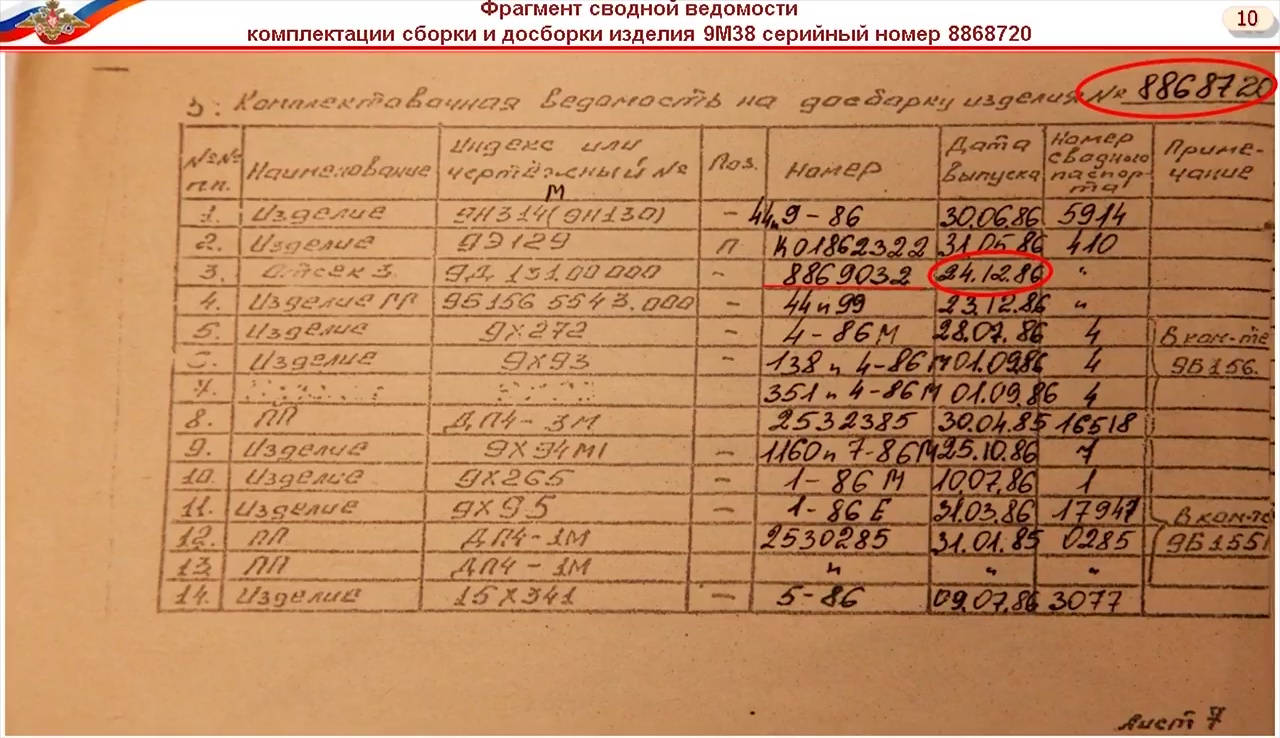 Фрагмент сводной ведомости
комплектации сборки и досборки изделия 9М38 серийный номер 8868720
10
3. Комплектовочная ведомость на досборку изделия № 8868720
№№ п.п. Наименование Индекс или чертёжный № Поз. Номер Дата выпуска Номер сводного паспорта Примечание
1. Изделие 9Н314М (9Н130) – 44п 9-86 30.06.86 5914
2. Изделие 9Э129 П К01862322 31.05.86 410
3. Отсек 3. 9Д 131.00 000 – 8869032 24.12.86 "
4. Изделие ГГ 9Б156 5543.000 – 44п99 23.12.86 "
5. Изделие 9Х272 – 4-86М 28.07.86 4 В ком-те
Изделие 9Х93 – 138п 4-86М 01.09.86 4 9Б156.
7. 351п 4-86М 01.09.86 4
8. ПП ДП4-3М 2532385 30.04.85 16518
9. Изделие 9Х94М1 – 1160п 7-86М 25.10.86 1
10. Изделие 9Х265 – 1-86М 10.07.86 1
11. Изделие 9Х95 – 1-86Е 31.03.86 17947 В ком-те
12. ПП ДП4-1М 2530285 31.01.85 0285 9Б1551
13. ПП ДП4-1М " " "
14. Изделие 15Х341 – 5-86 09.07.86 3077
Лист 7